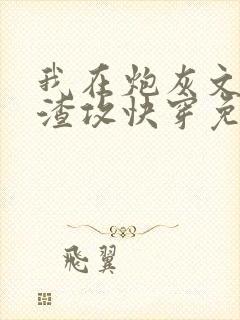 我在炮灰文
渣攻快穿免
飛翼